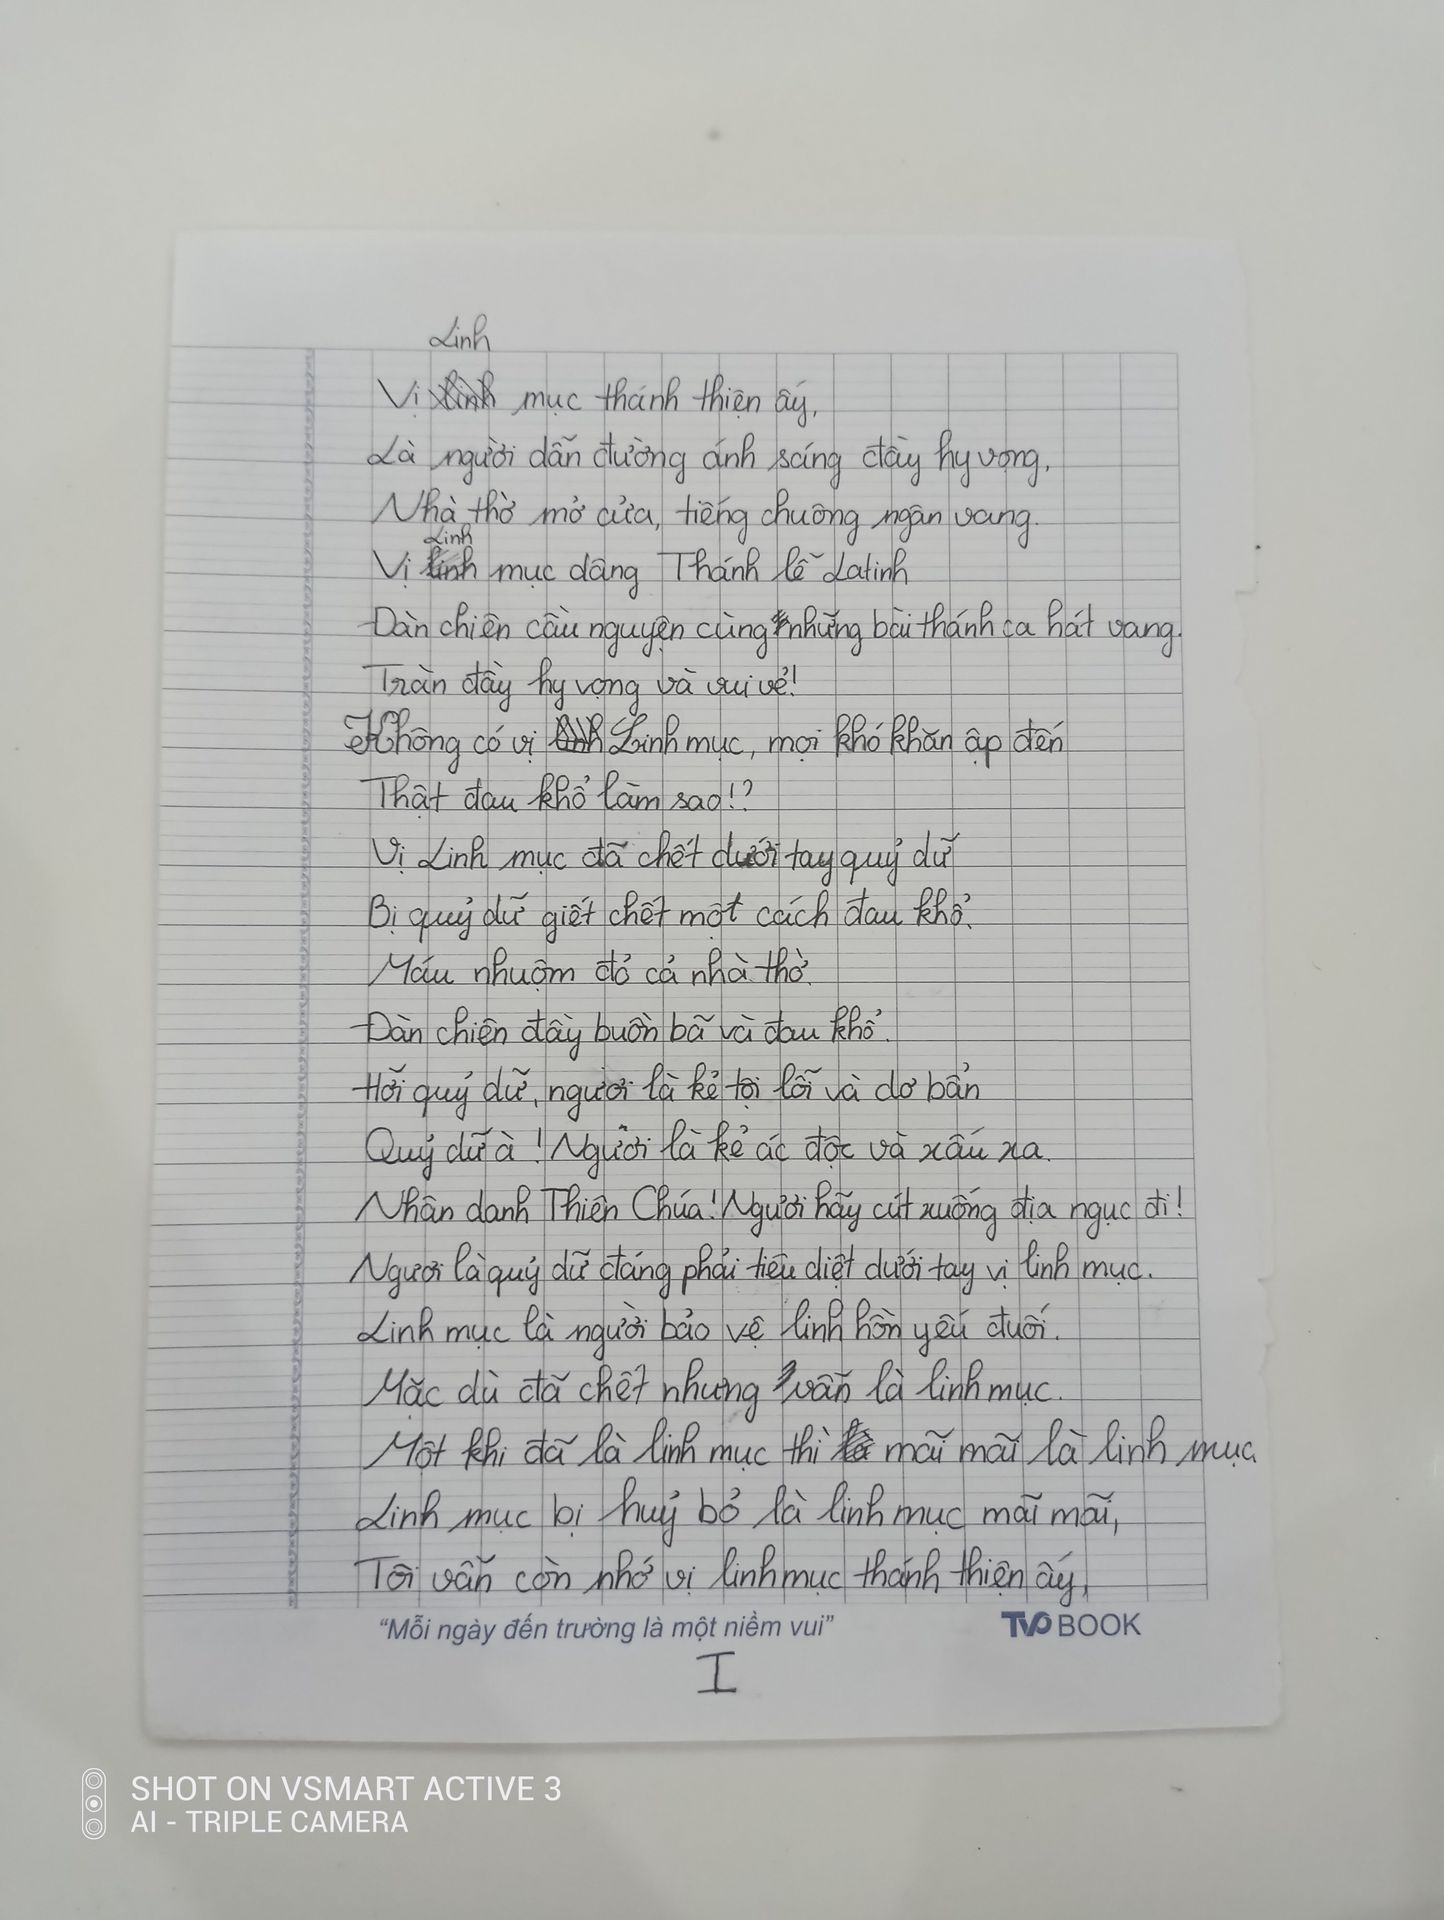 Linh
Vị mục thánh thiện ấy,
Là người dẫn đường ánh sáng đầy hy vọng,
Nhà thờ mở cửa, tiếng chuông ngân vang.
Linh
Vị mục dâng Thánh lễ Latinh
Đàn chiên cầu nguyện cùng những bài thánh ca hát vang.
Tràn đầy hy vọng và vui vẻ!
Không có vị Linh mục, mọi khó khăn ập đến
Thật đau khổ làm sao!?
Vị Linh mục đã chết dưới tay quỷ dữ
Bị quỷ dữ giết chết một cách đau khổ.
Máu nhuộm đỏ cả nhà thờ.
Đàn chiên đầy buồn bã và đau khổ.
Hỡi quỷ dữ, ngươi là kẻ tội lỗi và dơ bẩn
Quỷ dữ à! Ngươi là kẻ ác độc và xấu xa.
Nhân danh Thiên Chúa! Ngươi hãy cút xuống địa ngục đi!
Ngươi là quỷ dữ đáng phải tiêu diệt dưới tay vị linh mục.
Linh mục là người bảo vệ linh hồn yếu đuối.
Mặc dù đã chết nhưng vẫn là linh mục.
Một khi đã là linh mục thì mãi mãi là linh mục
Linh mục bị huỷ bỏ là linh mục mãi mãi,
Tôi vẫn còn nhớ vị linh mục thánh thiện ấy,
"Mỗi ngày đến trường là một niềm vui" TVO BOOK
I
SHOT ON VSMART ACTIVE 3
AI - TRIPLE CAMERA